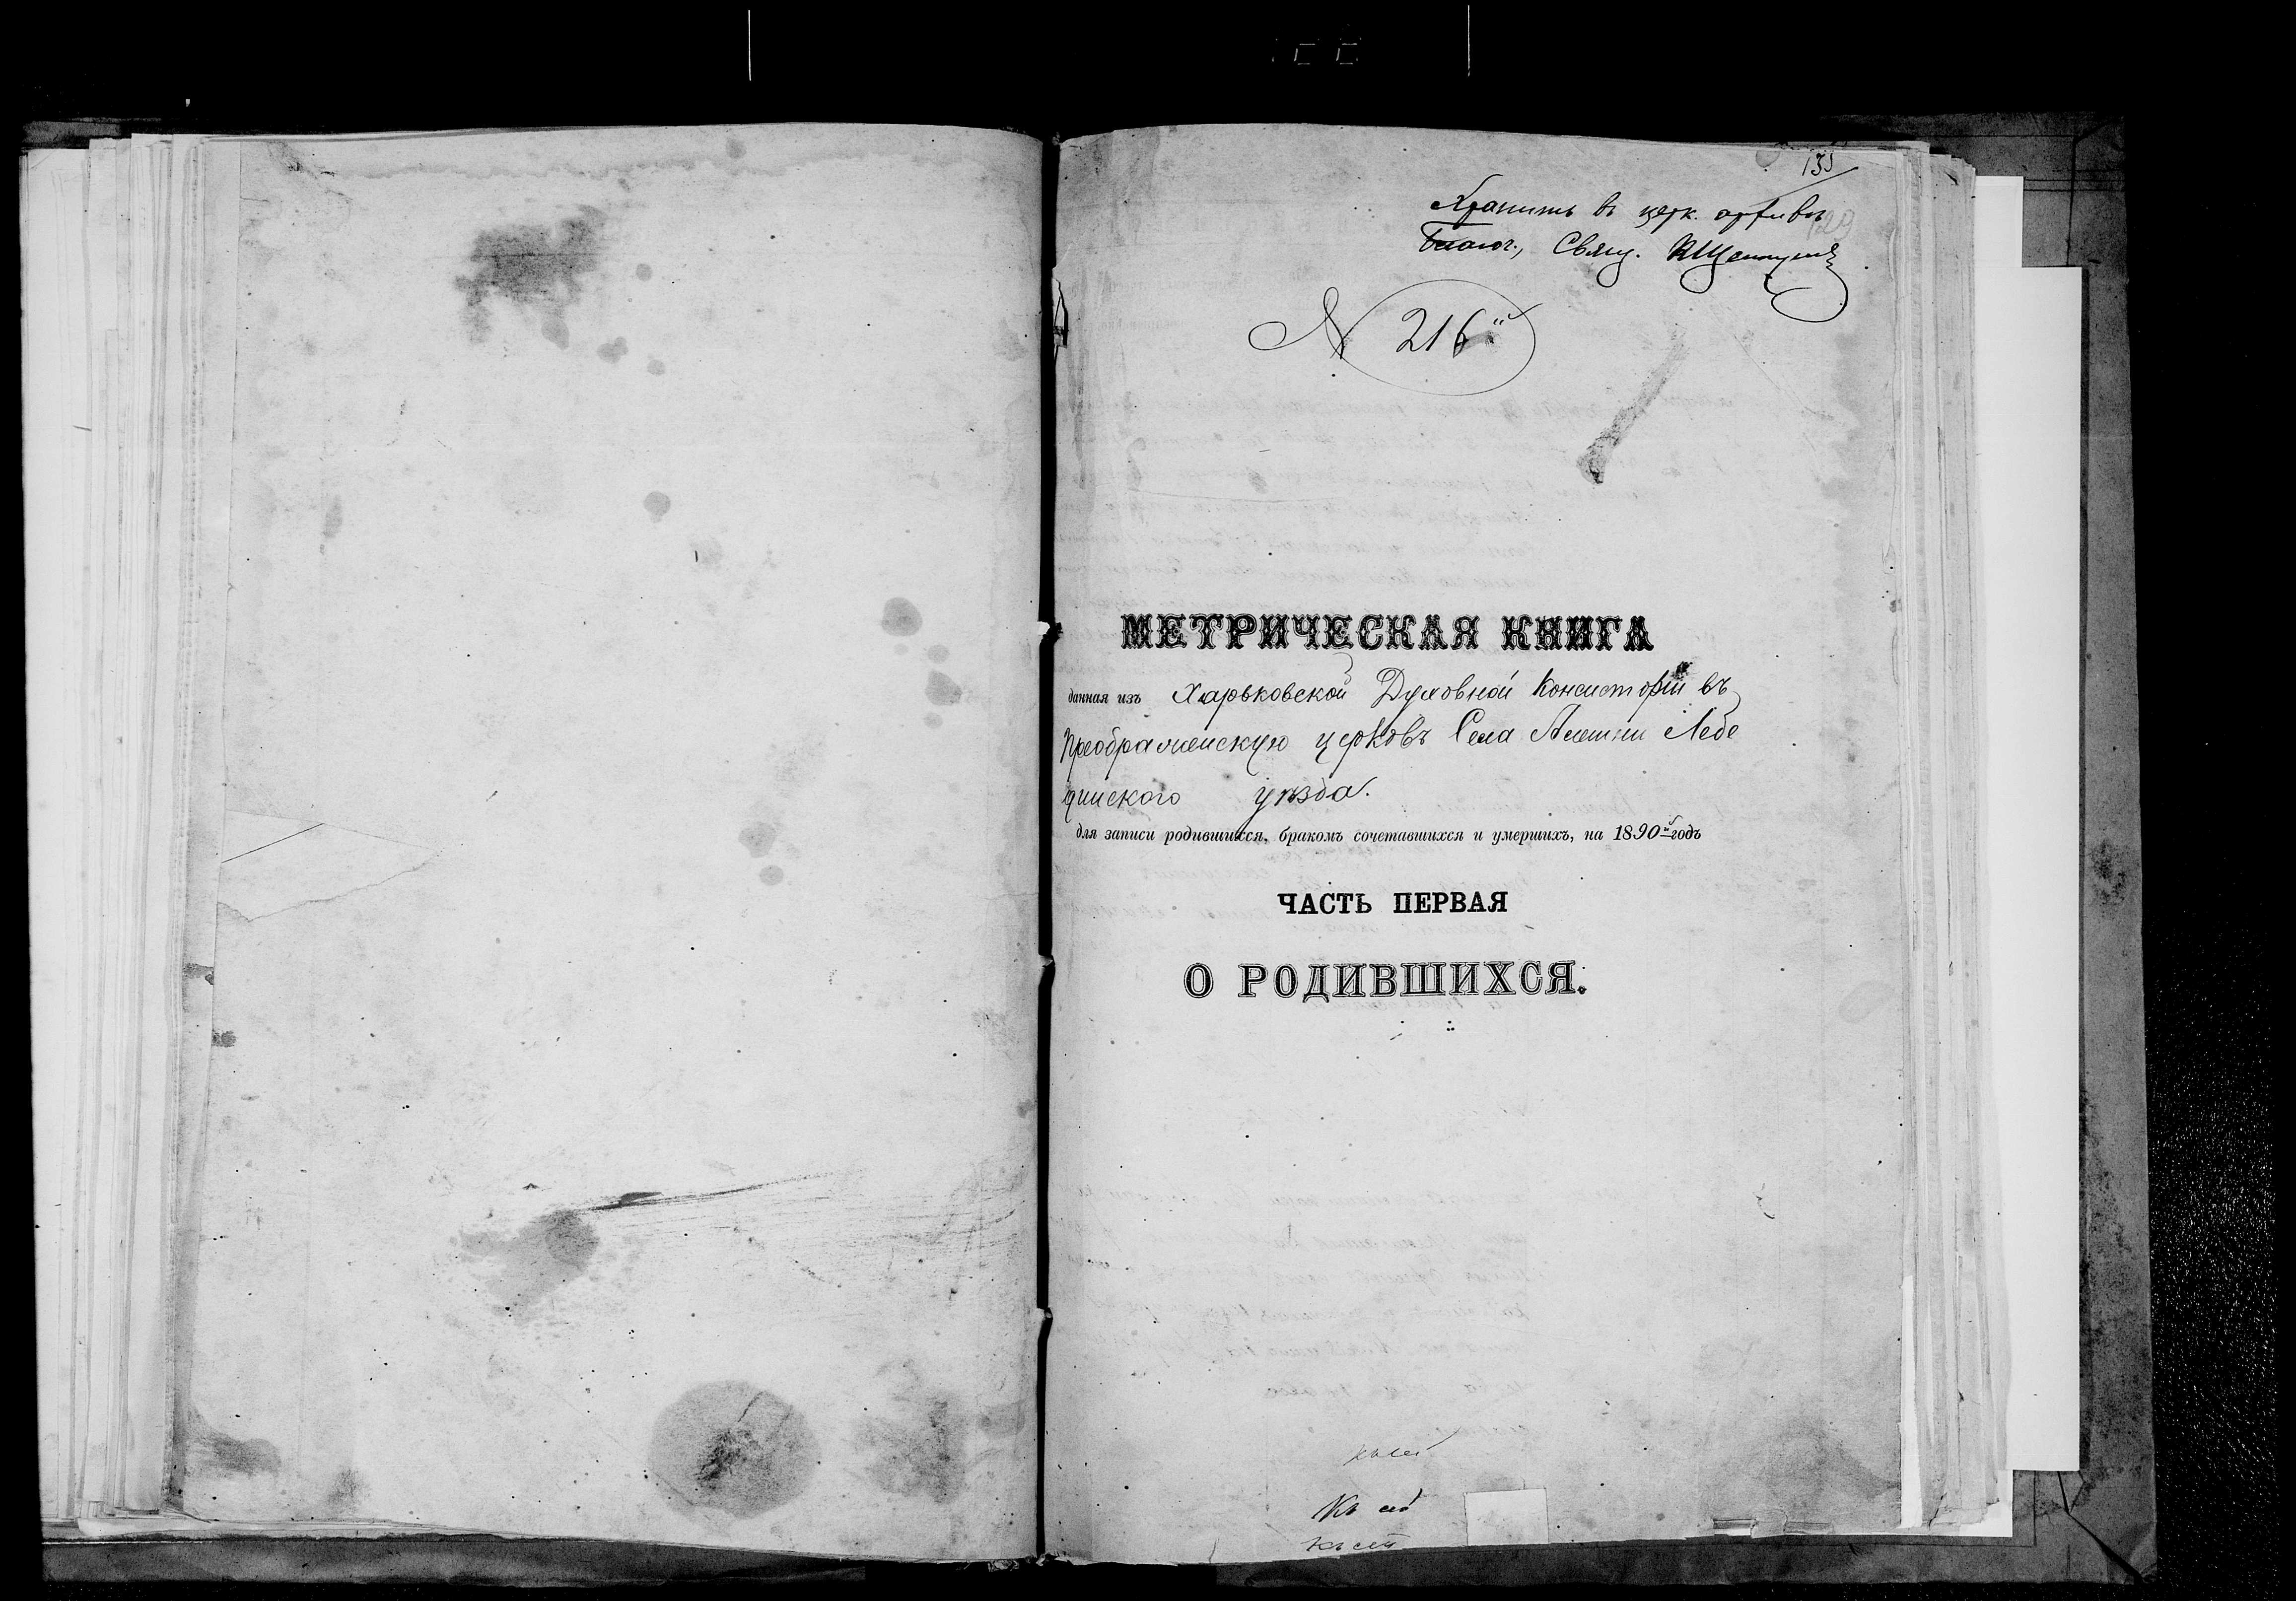 135
129
Хранить въ церк. архивѣ
Благоч., Свящ.
N 216й
МЕТРИЧЕСКАЯ КНИГА
данная изъ Харьковской Духовной Консисторіи въ
Преображенскую церковь Села Алешни Лебе
динского уѣзда.
для записи родившихся, бракомъ сочетавшихся и умершихъ, на 1890й годъ
ЧАСТЬ ПЕРВАЯ
О РОДИВШИХСЯ.
Къ сей
Къ сей
Къ сей